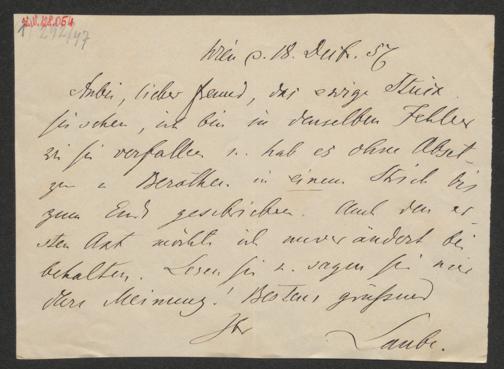 1/292/47
Wien d. 18. Dec. 57
Anbei, lieber Freund, das ewige Stück.
Sie sehen, ich bin in denselben Fehler
wie Sie verfallen u. hab es ohne Abset-
zen u. in einem Strich bis
zum Ende geschrieben. Auch den er-
sten Akt möchte ich unverändert bei
behalten. Lesen Sie u. sagen Sie mir
Ihre Meinung! Bestens grüßend
Ihr
Laube.